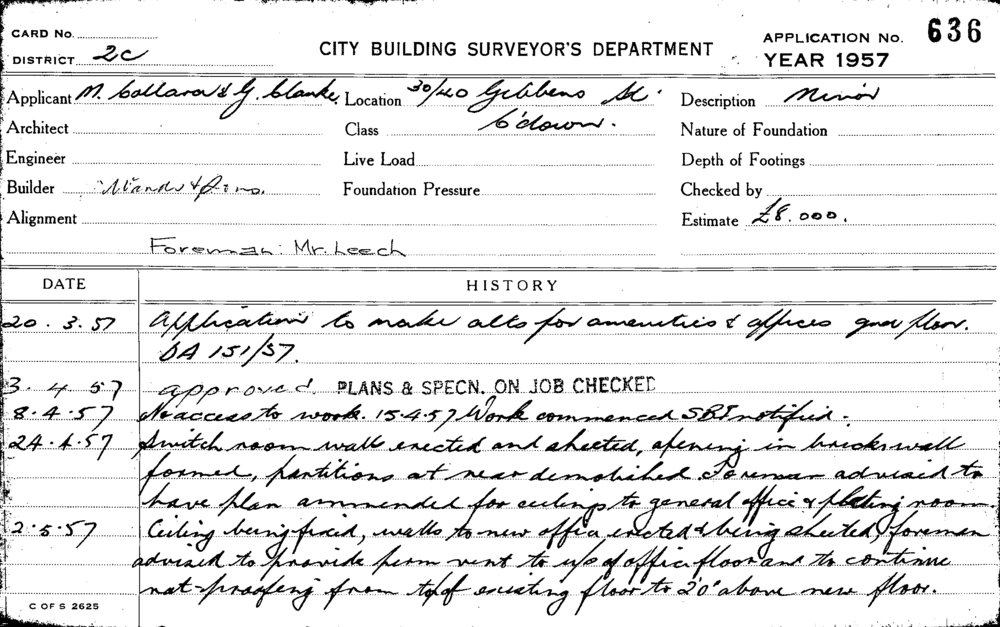 CARD No.
DISTRICT 2C
CITY BUILDING SURVEYOR'S DEPARTMENT
APPLICATION No. 636
YEAR 1957
Applicant M. Collara & G. Clanke. Location 30/40 Gibbens St. Description Minor
Architect Class C'down. Nature of Foundation
Engineer Live Load Depth of Footings
Builder Wands & Sons. Foundation Pressure Checked by
Alignment Estimate £8.000.
Foreman: Mr. Leech
DATE HISTORY
20.3.57 Application to make alts for amenities & offices grd floor.
DA 151/57.
3.4.57 approved. PLANS & SPECN. ON JOB CHECKED
8.4.57 No access to work. 15.4.57 Work commenced SBI notified.
24.4.57 Switch room walls erected and sheeted, opening in brick wall
formed, partitions at rear demolished. Foreman advised to
have plan ammended for ceilings to general office & plating room.
2.5.57 Ceiling being fixed, walls to new office erected & being sheeted, foreman
advised to provide perm vent to u/s of office floor and to continue
rat-proofing from top of existing floor to 2'0" above new floor.
C OF S 2625